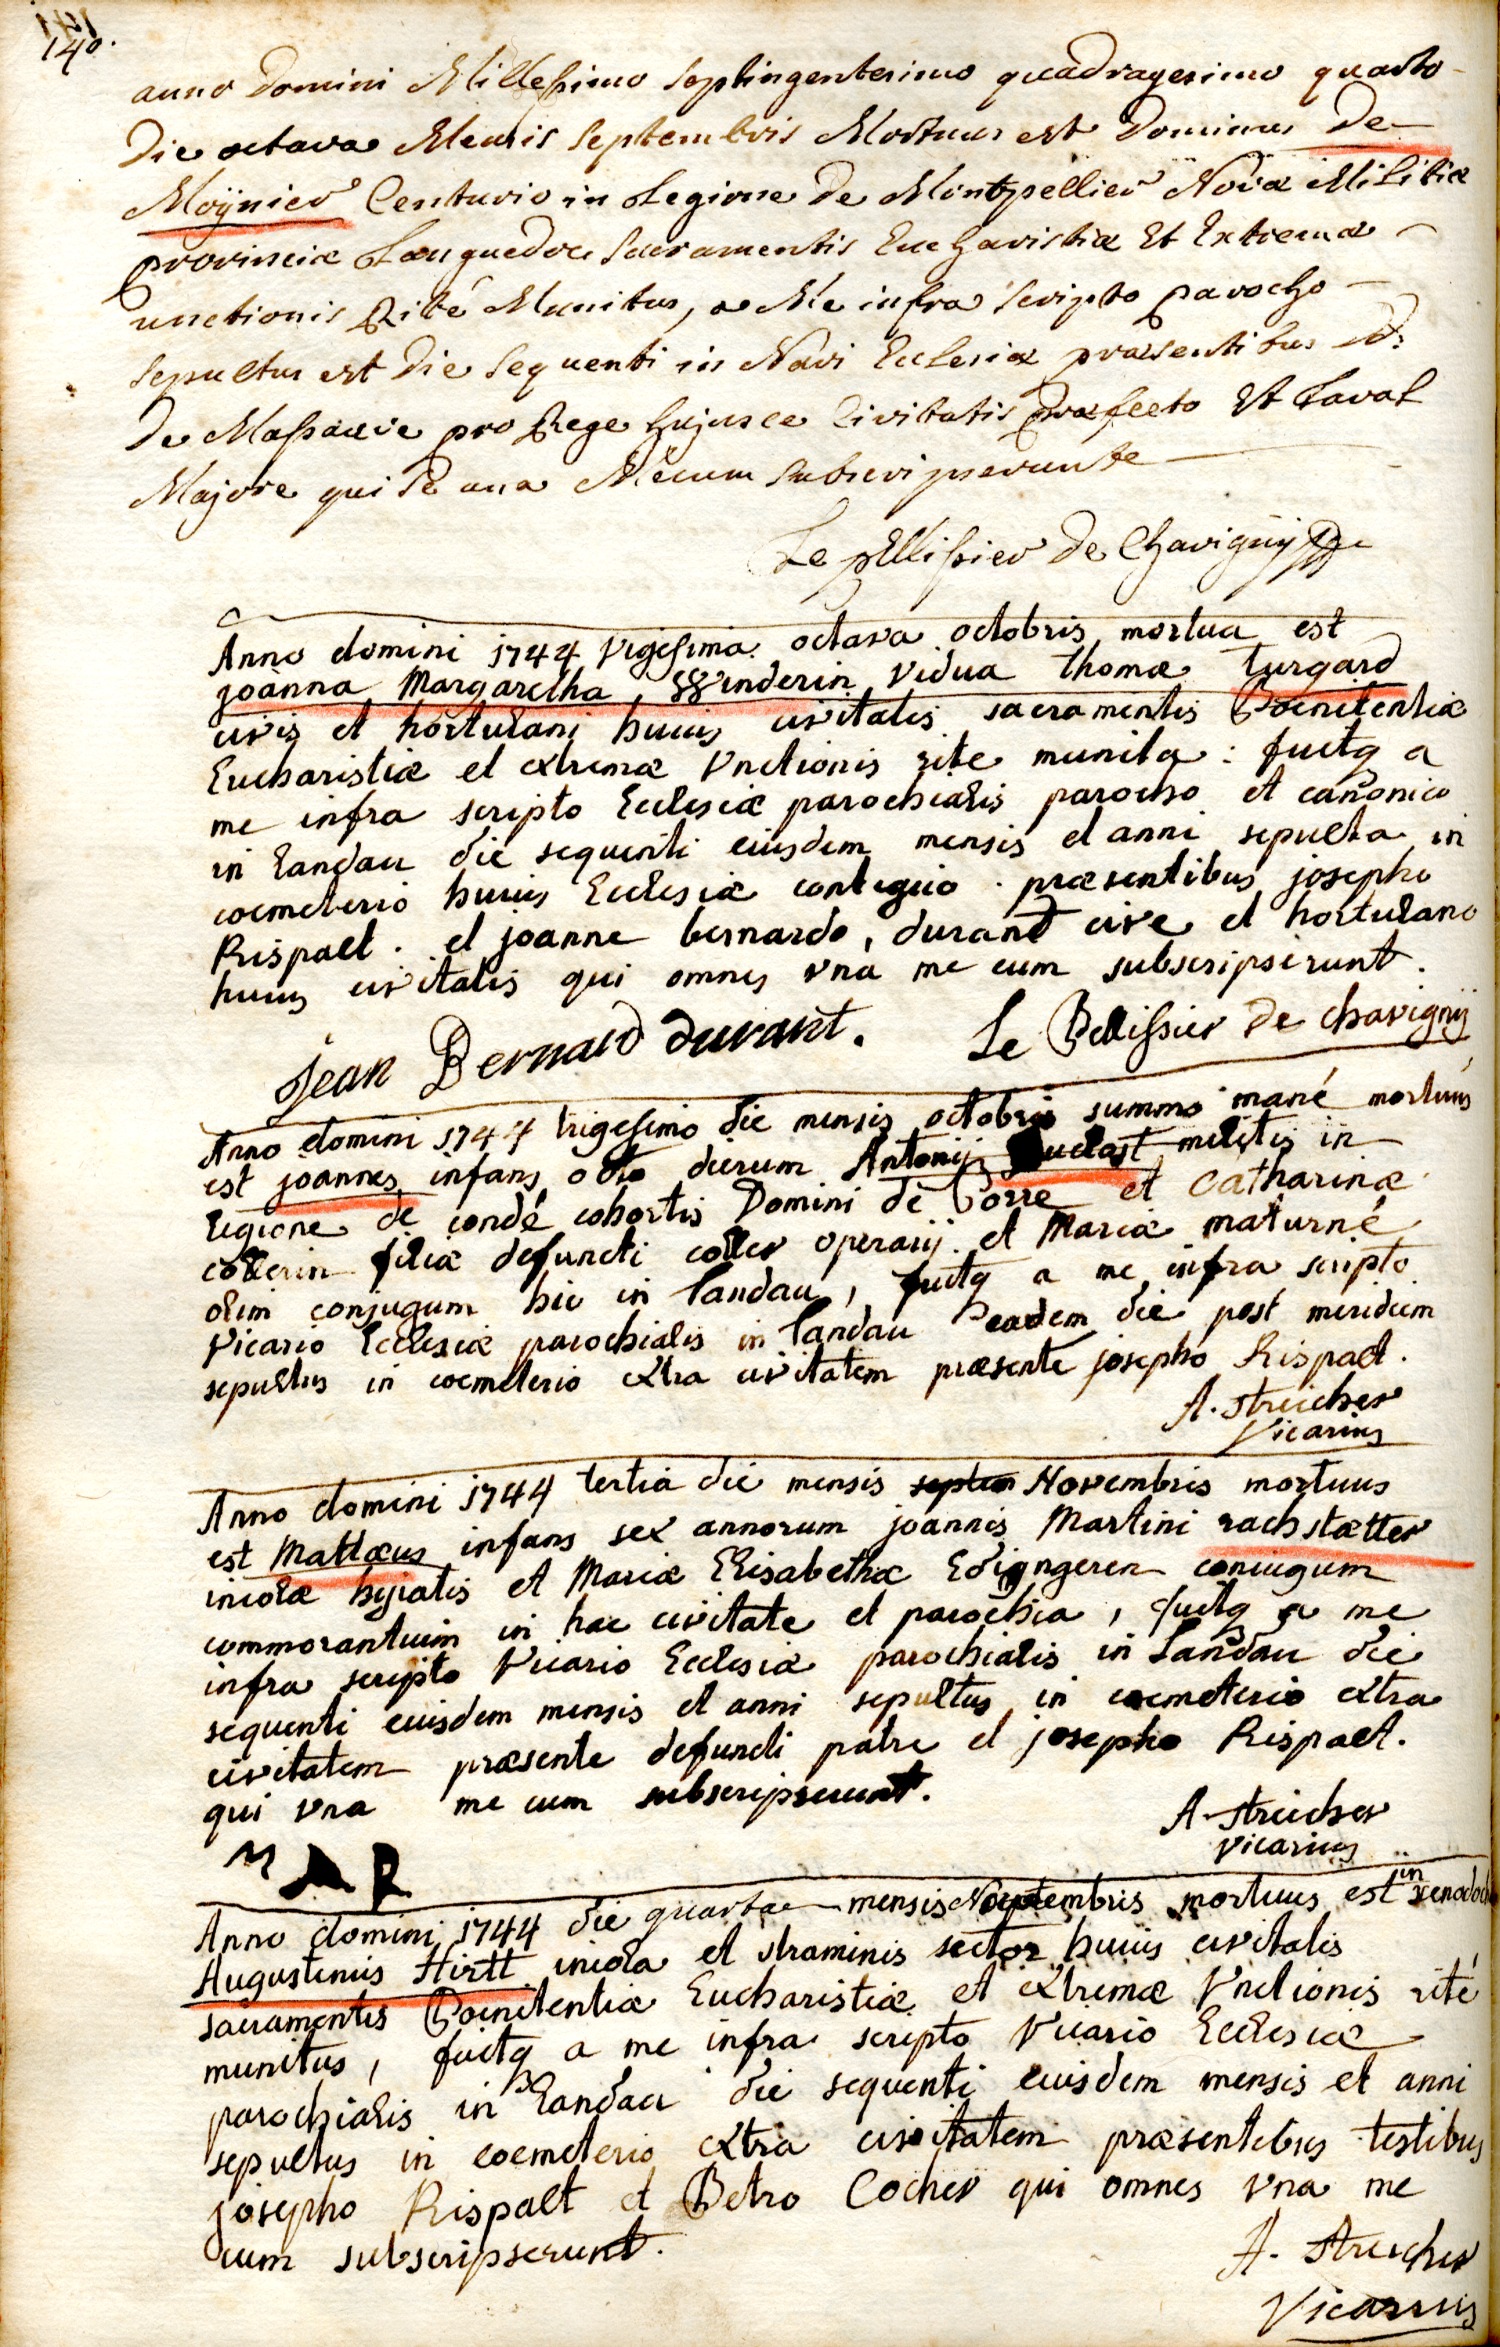 140.
anno Domini Millesimo Septingentesimo quadragesimo quarto
Die octava Mensis Septembris Mortuus est Dominus De
Moÿnier Centurio in Legione De Montpellier Nova Militia
provinciæ Languedoc Sacramentis Eucharistiæ Et Extremæ
unctionis Rité Munitus, a Me infra scripto parocho
sepultus est Die sequenti in Navi Ecclesiæ præsentibus D:
De Massauve pro Rege hujusce Civitatis præfecto Et Laval
Majore qui se una Mecum subscripserunte
Le pellissier De Chavignÿ
Anno domini 1744 vigesima octava octobris mortua est
joanna Margaretha, Winderin vidua thomæ turgard
civis et hortulani huius civitatis sacramentis Poenitentiæ
Eucharistiæ et extremæ Vnctionis rite munita: fuitq a
me infra scripto Ecclesiæ parochialis parocho et canonico
in Landau die sequenti eiusdem mensis et anni sepulta in
coemeterio huius Ecclesiæ contiguo. præsentibus josepho
Rispalt. et joanne bernardo, durant cive et hortulano
huius civitatis qui omnes vna me cum subscripserunt.
Jean Bernard durant. Le Pellissier De chavignÿ
Anno domini 1744 trigesimo die mensis octobris summo mané mortuus
est joannes infans octo dierum Antonij militis in
legione de condé cohortis Domini de Corre et Catharinæ
collerin filiæ defuncti coller operarij et Mariæ maturné
olim conjugum hic in Landau, fuitq a me infra scripto
Vicario Ecclesiæ parochialis in Landau eadem die post meridiem
sepultus in coemeterio extra civitatem præsente josepho Rispalt.
A. streicher
Vicarius
Anno domini 1744 tertia die mensis septem Novembris mortuus
est Mattæus infans sex annorum joannis Martini rachstætter
incolæ et Mariæ Elisabethæ Edigngeren coniugum
commorantium in hac civitate et parochia, fuitq a me
infra scripto Vicario Ecclesiæ parochialis in Landau die
sequenti eiusdem mensis et anni sepultus in coemeterio extra
civitatem præsente defuncti patre et josepho Rispalt.
qui vna me cum subscripserunt.
A. streicher
vicarius
M R
Anno domini 1744 die quarta mensis Novembris mortuus est in
Augustinus Hirtt incola et straminis sector huius civitatis
sacramentis Poenitentiæ Eucharistiæ et extremæ Vnctionis rité
munitus, fuitq a me infra scripto Vicario Ecclesiæ
parochialis in Landau die sequenti eiusdem mensis et anni
sepultus in coemeterio extra civitatem præsentibus testibus
josepho Rispalt et Petro Cocher qui omnes vna me
cum subscripserunt.
A. streicher
Vicarius